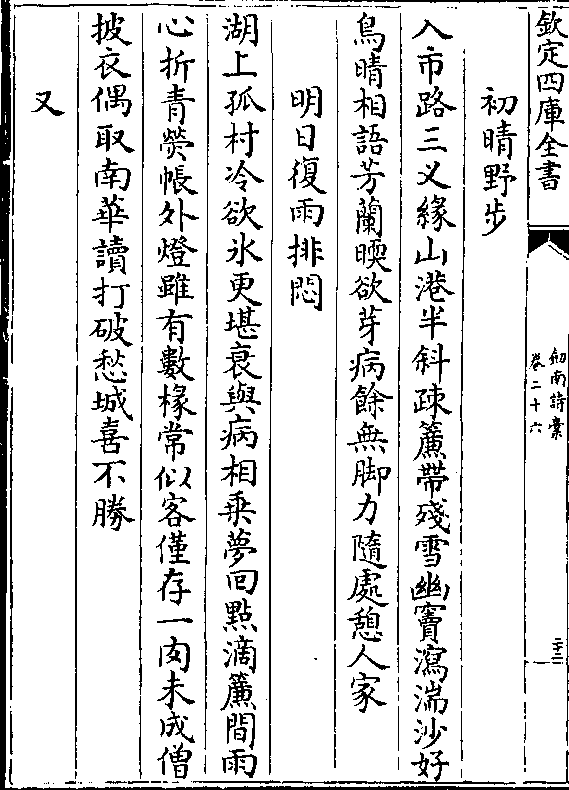 欽定四庫全書
劎南詩槀
卷二十六
二十二
初晴野步
入市路三义緣山港半斜疎簾帶殘雪幽竇瀉湍沙好
鳥晴相語芳蘭暎欲芽病餘無脚力隨處憩人家
明日復雨排悶
湖上孤村冷欲氷更堪衰與病相乗夢回點滴簾間雨
心折青熒帳外燈雖有數椽常似客僅存一肉未成僧
披衣偶取南華讀打破愁城喜不勝
又